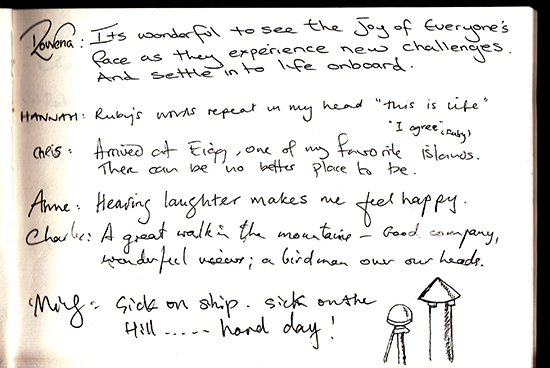 Rowena: Its wonderful to see the Joy of Everyone's
face as they experience new challenges.
And settle into life onboard.
HANNAH: Ruby's words repeat in my head "this is life"
"I agree" (Ruby)
CHRIS: Arrived at Eigg, one of my favorite islands.
Ther can be no better place to be.
Anne: Hearing laughter makes me feel happy.
Charlie: A great walk in the mountains – Good company,
wonderful views; a birdman over our heads.
Sick on ship. Sick on the
Hill ..... hard day!